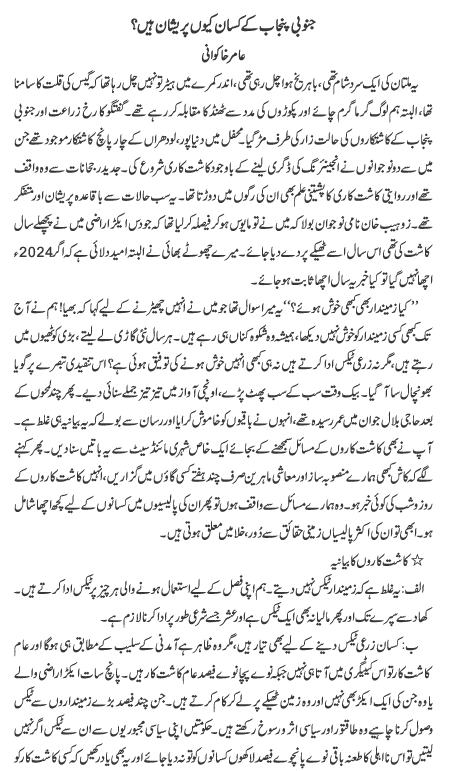 جنوبی پنجاب کے کسان کیوں پریشان ہیں؟
عامر خاکوانی
یہ ملتان کی ایک سرد شام تھی، باہر یخ ہوا چل رہی تھی، اندر کمرے میں ہیٹر تو نہیں چل رہا تھا کہ گیس کی قلت کا سامنا
تھا، البتہ ہم لوگ گرما گرم چائے اور پکوڑوں کی مدد سے ٹھنڈ کا مقابلہ کر رہے تھے۔ گفتگو کا رخ زراعت اور جنوبی
پنجاب کے کاشتکاروں کی حالت زار کی طرف مڑ گیا۔ محفل میں دنیاپور، لودھراں کے چار پانچ کاشتکار موجود تھے جن
میں سے دو نوجوانوں نے انجینئرنگ کی ڈگری لینے کے باوجود کاشت کاری شروع کی۔ جدید رجحانات سے وہ واقف
تھے اور روایتی کاشت کاری کا پشتینی علم بھی ان کی رگوں میں دوڑتا تھا۔ یہ سب حالات سے باقاعدہ پریشان اور متفکر
تھے۔ زوہیب خان نامی نوجوان بولا کہ میں نے تو مایوس ہو کر فیصلہ کر لیا تھا کہ جو دس ایکڑ اراضی میں نے پچھلے سال
کاشت کی تھی اس سال اسے ٹھیکے پر دے دیا جائے۔ میرے چھوٹے بھائی نے البتہ امید دلائی ہے کہ اگر 2024ء
اچھا نہیں گیا تو کیا خبر یہ سال اچھا ثابت ہو جائے۔
’’کیا زمیندار بھی کبھی خوش ہوئے؟‘‘ یہ میرا سوال تھا جو میں نے انہیں چھیڑنے کے لیے کہا کہ بھیا! ہم نے آج
تک کبھی کسی زمیندار کو خوش نہیں دیکھا، ہمیشہ وہ شکوہ کناں ہی رہے ہیں۔ ہر سال نئی گاڑی لے لیتے، بڑی کوٹھیوں میں
رہتے ہیں، مگر نہ زرعی ٹیکس ادا کرتے ہیں نہ ہی کبھی انہیں خوش ہونے کی توفیق ہوئی ہے؟ اس تنقیدی تبصرے پر گویا
بھونچال سا آ گیا۔ بیک وقت سب کے سب پھٹ پڑے، اونچی آواز میں تیز تیز جملے سنائی دیے۔ پھر چند لمحوں کے
بعد حاجی بلال جو ان میں عمر رسیدہ تھے، انہوں نے باقیوں کو خاموش کرایا اور رسان سے بولے کہ یہ بیانیہ ہی غلط ہے۔
آپ نے بھی کاشت کاروں کے مسائل سمجھنے کے بجائے ایک خاص شہری مائنڈ سیٹ سے یہ باتیں سنا دیں۔ پھر کہنے
لگے کہ کاش کبھی ہمارے منصوبہ ساز اور معاشی ماہرین صرف چند ہفتے کسی گاؤں میں گزاریں، انہیں کاشت کاروں کے
روز و شب کی کوئی خبر ہو۔ وہ ہمارے مسائل سے واقف ہوں تو پھر ان کی پالیسیوں میں کسانوں کے لیے کچھ اچھا شامل
ہو۔ ابھی تو ان کی اکثر پالیسیاں زمینی حقائق سے دُور، خلا میں معلق ہوتی ہیں۔
☆ کاشت کاروں کا بیانیہ
الف: یہ غلط ہے کہ زمیندار ٹیکس نہیں دیتے۔ ہم اپنی فصل کے لیے استعمال ہونے والی ہر چیز پر ٹیکس ادا کرتے ہیں۔
کھاد سے سپرے تک اور پھر مالیانہ بھی ایک ٹیکس ہے اور عشر جسے شرعی طور پر ادا کرنا لازم ہے۔
ب: کسان زرعی ٹیکس دینے کے لیے بھی تیار ہیں، مگر وہ ظاہر ہے آمدنی کے سلیب کے مطابق ہی ہوگا اور عام
کاشت کار تو اس کیٹیگری میں آتا ہی نہیں جبکہ نوے پچانوے فیصد عام کاشت کار ہیں۔ پانچ سات ایکڑ اراضی والے
یا وہ جن کی ایک ایکڑ بھی نہیں اور وہ زمین ٹھیکے پر لے کر کام کرتے ہیں۔ جن چند فیصد بڑے زمینداروں سے ٹیکس
وصول کرنا چاہیے وہ طاقتور اور سیاسی اثر و رسوخ رکھتے ہیں۔ حکومتیں اپنی سیاسی مجبوریوں سے ان سے ٹیکس اگر نہیں
لیتیں تو اس نا اہلی کا طعنہ باقی نوے پانچوے فیصد لاکھوں کسانوں کو تو نہ دیا جائے اور یہ بھی یاد رکھیں کہ کسی کاشت کار کو